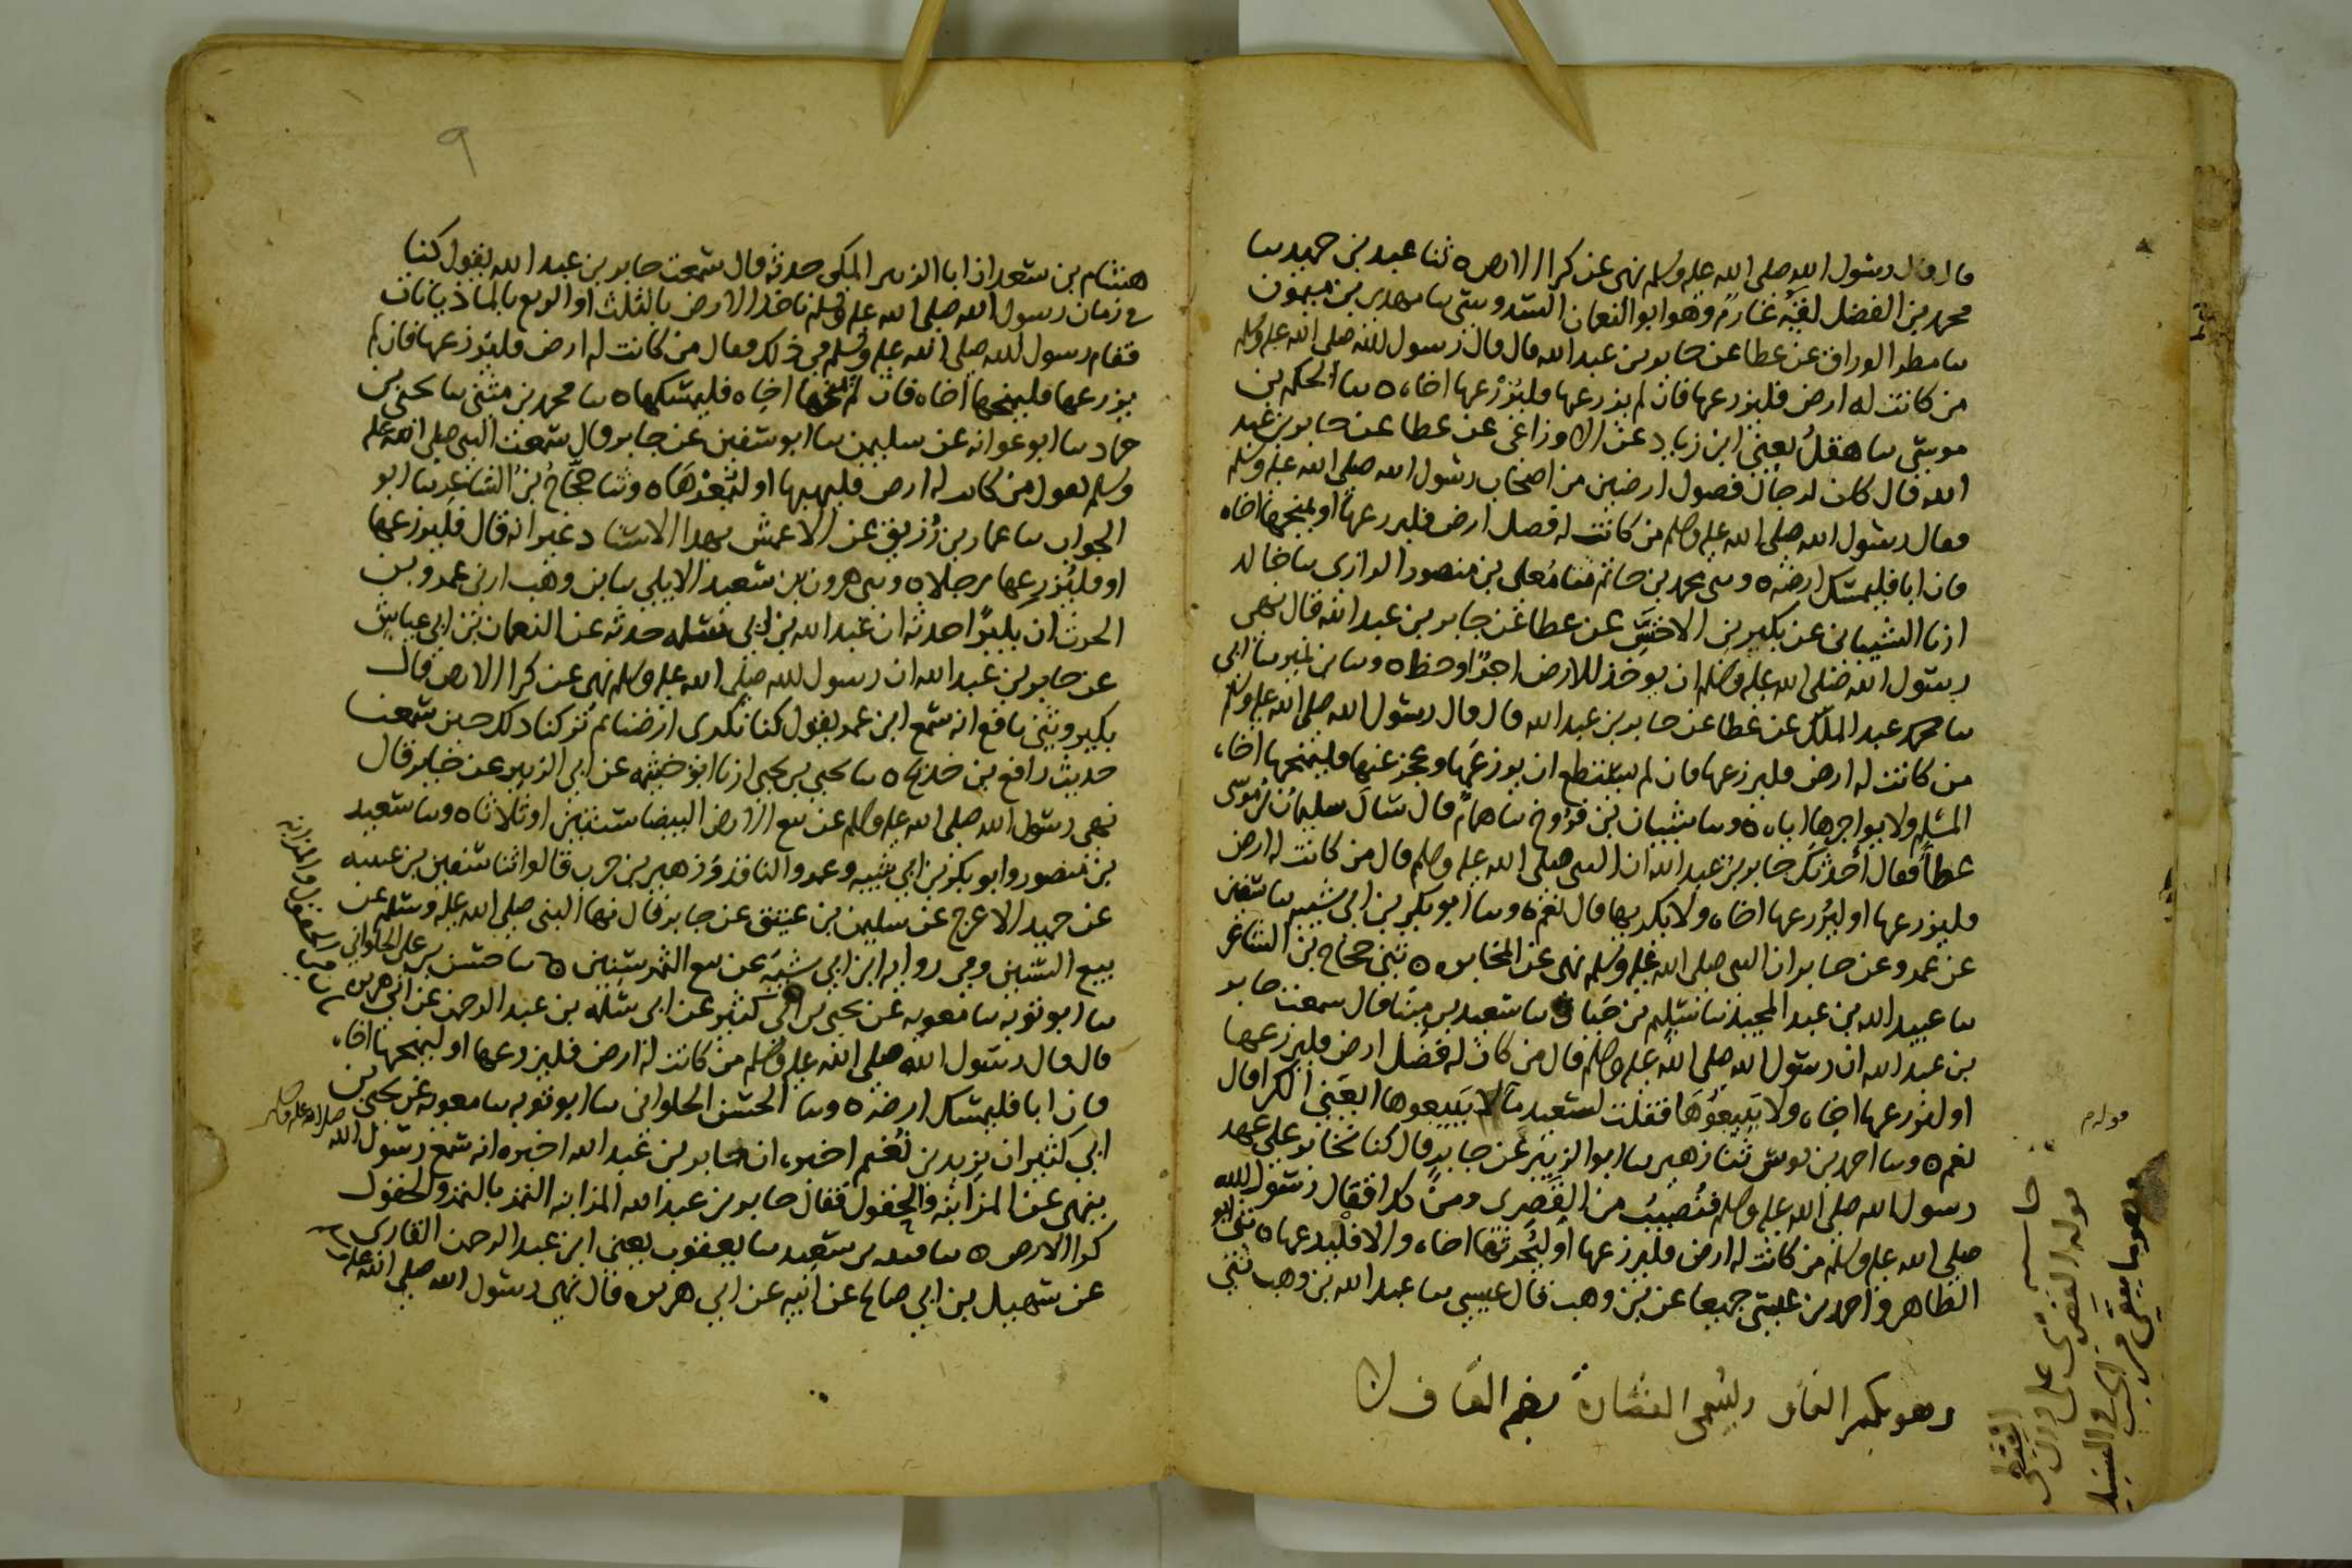 قال قال رسول الله صلى الله عليه وسلم نهى عن كرا الارض ه ثنا عبد بن حميد ثنا
محمد بن الفضل لقبه عارم وهو ابو النعمان السدوسي ثنا مهدي بن ميمون
ثنا مطر الوراق عن عطا عن جابر بن عبد الله قال قال رسول الله صلى الله عليه وسلم
من كانت له ارض فليزرعها فان لم يزرعها فليزرعها اخاه ه ثنا الحكم بن
موسى ثنا هقل يعني ابن زياد عن الاوزاعي عن عطا عن جابر بن عبد
الله قال كان لرجال فضول ارضين من اصحاب رسول الله صلى الله عليه وسلم
فقال رسول الله صلى الله عليه وسلم من كانت له فضل ارض فليزرعها او ليمنحها اخاه
فان ابا فليمسك ارضه ه وثني محمد بن حاتم ثنا معلى بن منصور الرازي ثنا خالد
ارنا الشيباني عن بكير بن الاخنس عن عطا عن جابر بن عبد الله قال نهى
رسول الله صلى الله عليه وسلم ان يوخذ للارض اجرا او حظ ه وثنا بن نمير ثنا ابي
ثنا عبد الملك عن عطا عن جابر بن عبد الله قال قال رسول الله صلى الله عليه وسلم
من كانت له ارض فليزرعها فان لم يستطع ان يزرعها وعجز عنها فليمنحها اخاه
المسلم ولا يواجرها اياه ه وثنا شيبان بن فروخ ثنا همام قال سال سليمان بن موسى
عطا فقال احدثك جابر بن عبد الله ان النبي صلى الله عليه وسلم قال من كانت له ارض
فليزرعها او ليزرعها اخاه ولا يكريها قال نعم ه وثنا ابو بكر بن ابي شيبه ثنا سفين
عن عمرو عن جابر ان النبي صلى الله عليه وسلم نهى عن المخابره ه ثني حجاج بن الشاعر
ثنا عبيد الله بن عبد المجيد ثنا سليم بن حيان ثنا سعيد بن مينا قال سمعت جابر
بن عبد الله ان رسول الله صلى الله عليه وسلم قال من كان له فضل ارض فليزرعها
او ليزرعها اخاه ولا تبيعوها فقلت لسعيد ما لا تبيعوها ايعني الكرا قال
نعم ه وثنا احمد بن يونس ثنا زهير ثنا ابو الزبير عن جابر قال كنا نخابر على عهد
رسول الله صلى الله عليه وسلم فنصيب من القصري ومن كذا فقال رسول الله
صلى الله عليه وسلم من كانت له ارض فليزرعها او ليحرثها اخاه والا فليدعها ه ثني ابو
الطاهر واحمد بن عيسى جميعا عن بن وهب قال عيسى ثنا عبد الله بن وهب ثني
وهو بكسر القاف وليسمى القصارة بضم القاف
حاشيه
قوله القصري على وزن القبطي
وهو ما يبقى من الحب في السنبل
٩
هشام بن سعد ان ابا الزبير المكي حدثه قال سمعت جابر بن عبد الله يقول كنا
في زمان رسول الله صلى الله عليه وسلم ناخذ الارض بالثلث او الربع بالماذيانات
فقام رسول الله صلى الله عليه وسلم في ذلك فقال من كانت له ارض فليزرعها فان لم
يزرعها فليمنحها اخاه فان لم يمنحها اخاه فليمسكها ه ثنا محمد بن مثنى ثنا يحيى بن
حماد ثنا ابو عوانه عن سليمن ثنا ابو سفين عن جابر قال سمعت النبي صلى الله عليه
وسلم يقول من كانت له ارض فليهبها او ليعرها ه وثنا حجاج بن الشاعر ثنا ابو
الجواب ثنا عمار بن رزيق عن الاعمش بهذا الاسناد غير انه قال فليزرعها
او فليزرعها رجلا ه وثني هرون بن سعيد الايلي ثنا بن وهب ارني عمرو بن
الحرث ان بكيرا حدثه ان عبد الله بن ابي سلمه حدثه عن النعمان بن ابي عياش
عن جابر بن عبد الله ان رسول الله صلى الله عليه وسلم نهى عن كرا الارض قال
بكير وثني نافع انه سمع ابن عمر يقول كنا نكري ارضنا ثم تركنا ذلك حين سمعنا
حديث رافع بن خديج ه ثنا يحيى بن يحيى ارنا ابو خيثمه عن ابي الزبير عن جابر قال
نهى رسول الله صلى الله عليه وسلم عن بيع الارض البيضا سنتين او ثلاثا ه وثنا سعيد
بن منصور وابو بكر بن ابي شيبه وعمرو الناقد وزهير بن حرب قالوا ثنا سفين بن عيينه
عن حميد الاعرج عن سليمن بن عتيق عن جابر قال نها النبي صلى الله عليه وسلم عن
بيع السنين وفي روايه ابن ابي شيبه عن بيع الثمر سنين ه ثنا حسن بن علي الحلواني
ثنا ابو توبه ثنا معويه عن يحيى بن ابي كثير عن ابي سلمه بن عبد الرحمن عن ابي هريره
قال قال رسول الله صلى الله عليه وسلم من كانت له ارض فليزرعها او ليمنحها اخاه
فان ابا فليمسك ارضه ه وثنا الحسن الحلواني ثنا ابو توبه ثنا معويه عن يحيى بن
ابي كثير ان يزيد بن نعيم اخبره ان جابر بن عبد الله اخبره انه سمع رسول الله صلى الله عليه وسلم
ينهى عن المزابنه والحقول فقال جابر بن عبد الله المزابنه الثمر بالتمر والحقول
كرا الارض ه ثنا قتيبه بن سعيد ثنا يعقوب يعني ابن عبد الرحمن القاري
عن سهيل بن ابي صالح عن ابيه عن ابي هريره قال نهى رسول الله صلى الله عليه